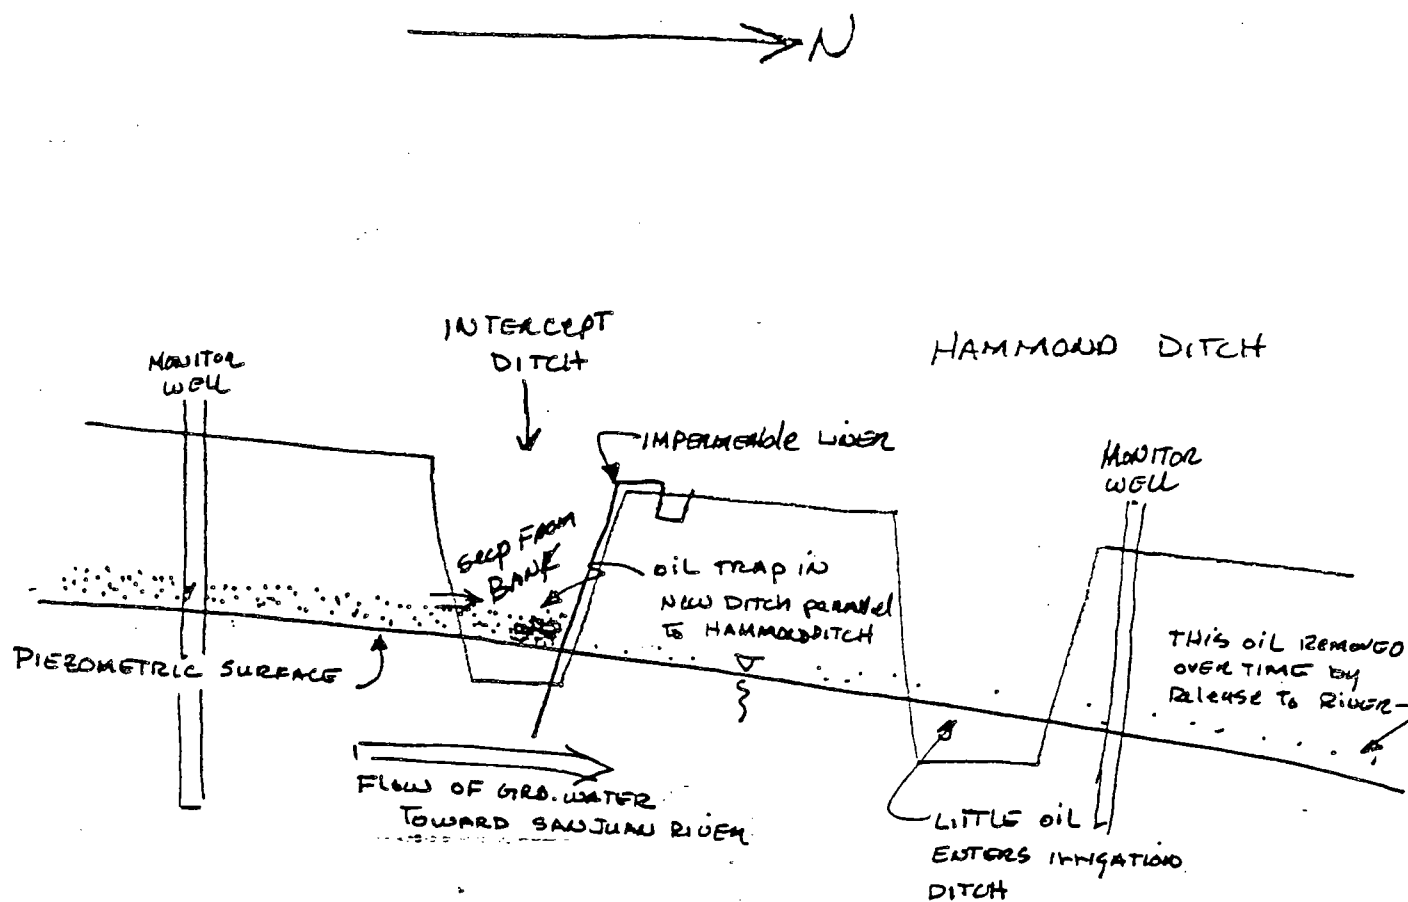 N
INTERCEPT
DITCH
HAMMOND DITCH
MONITOR
WELL
IMPERMEABLE LINER
MONITOR
WELL
SEEP FROM
BANK
OIL TRAP IN
NEW DITCH parallel
TO HAMMOND DITCH
THIS OIL REMOVED
OVER TIME BY
Release To RIVER
PIEZOMETRIC SURFACE
FLOW OF GRD. WATER
TOWARD SAN JUAN RIVER
LITTLE OIL
ENTERS IRRIGATION
DITCH